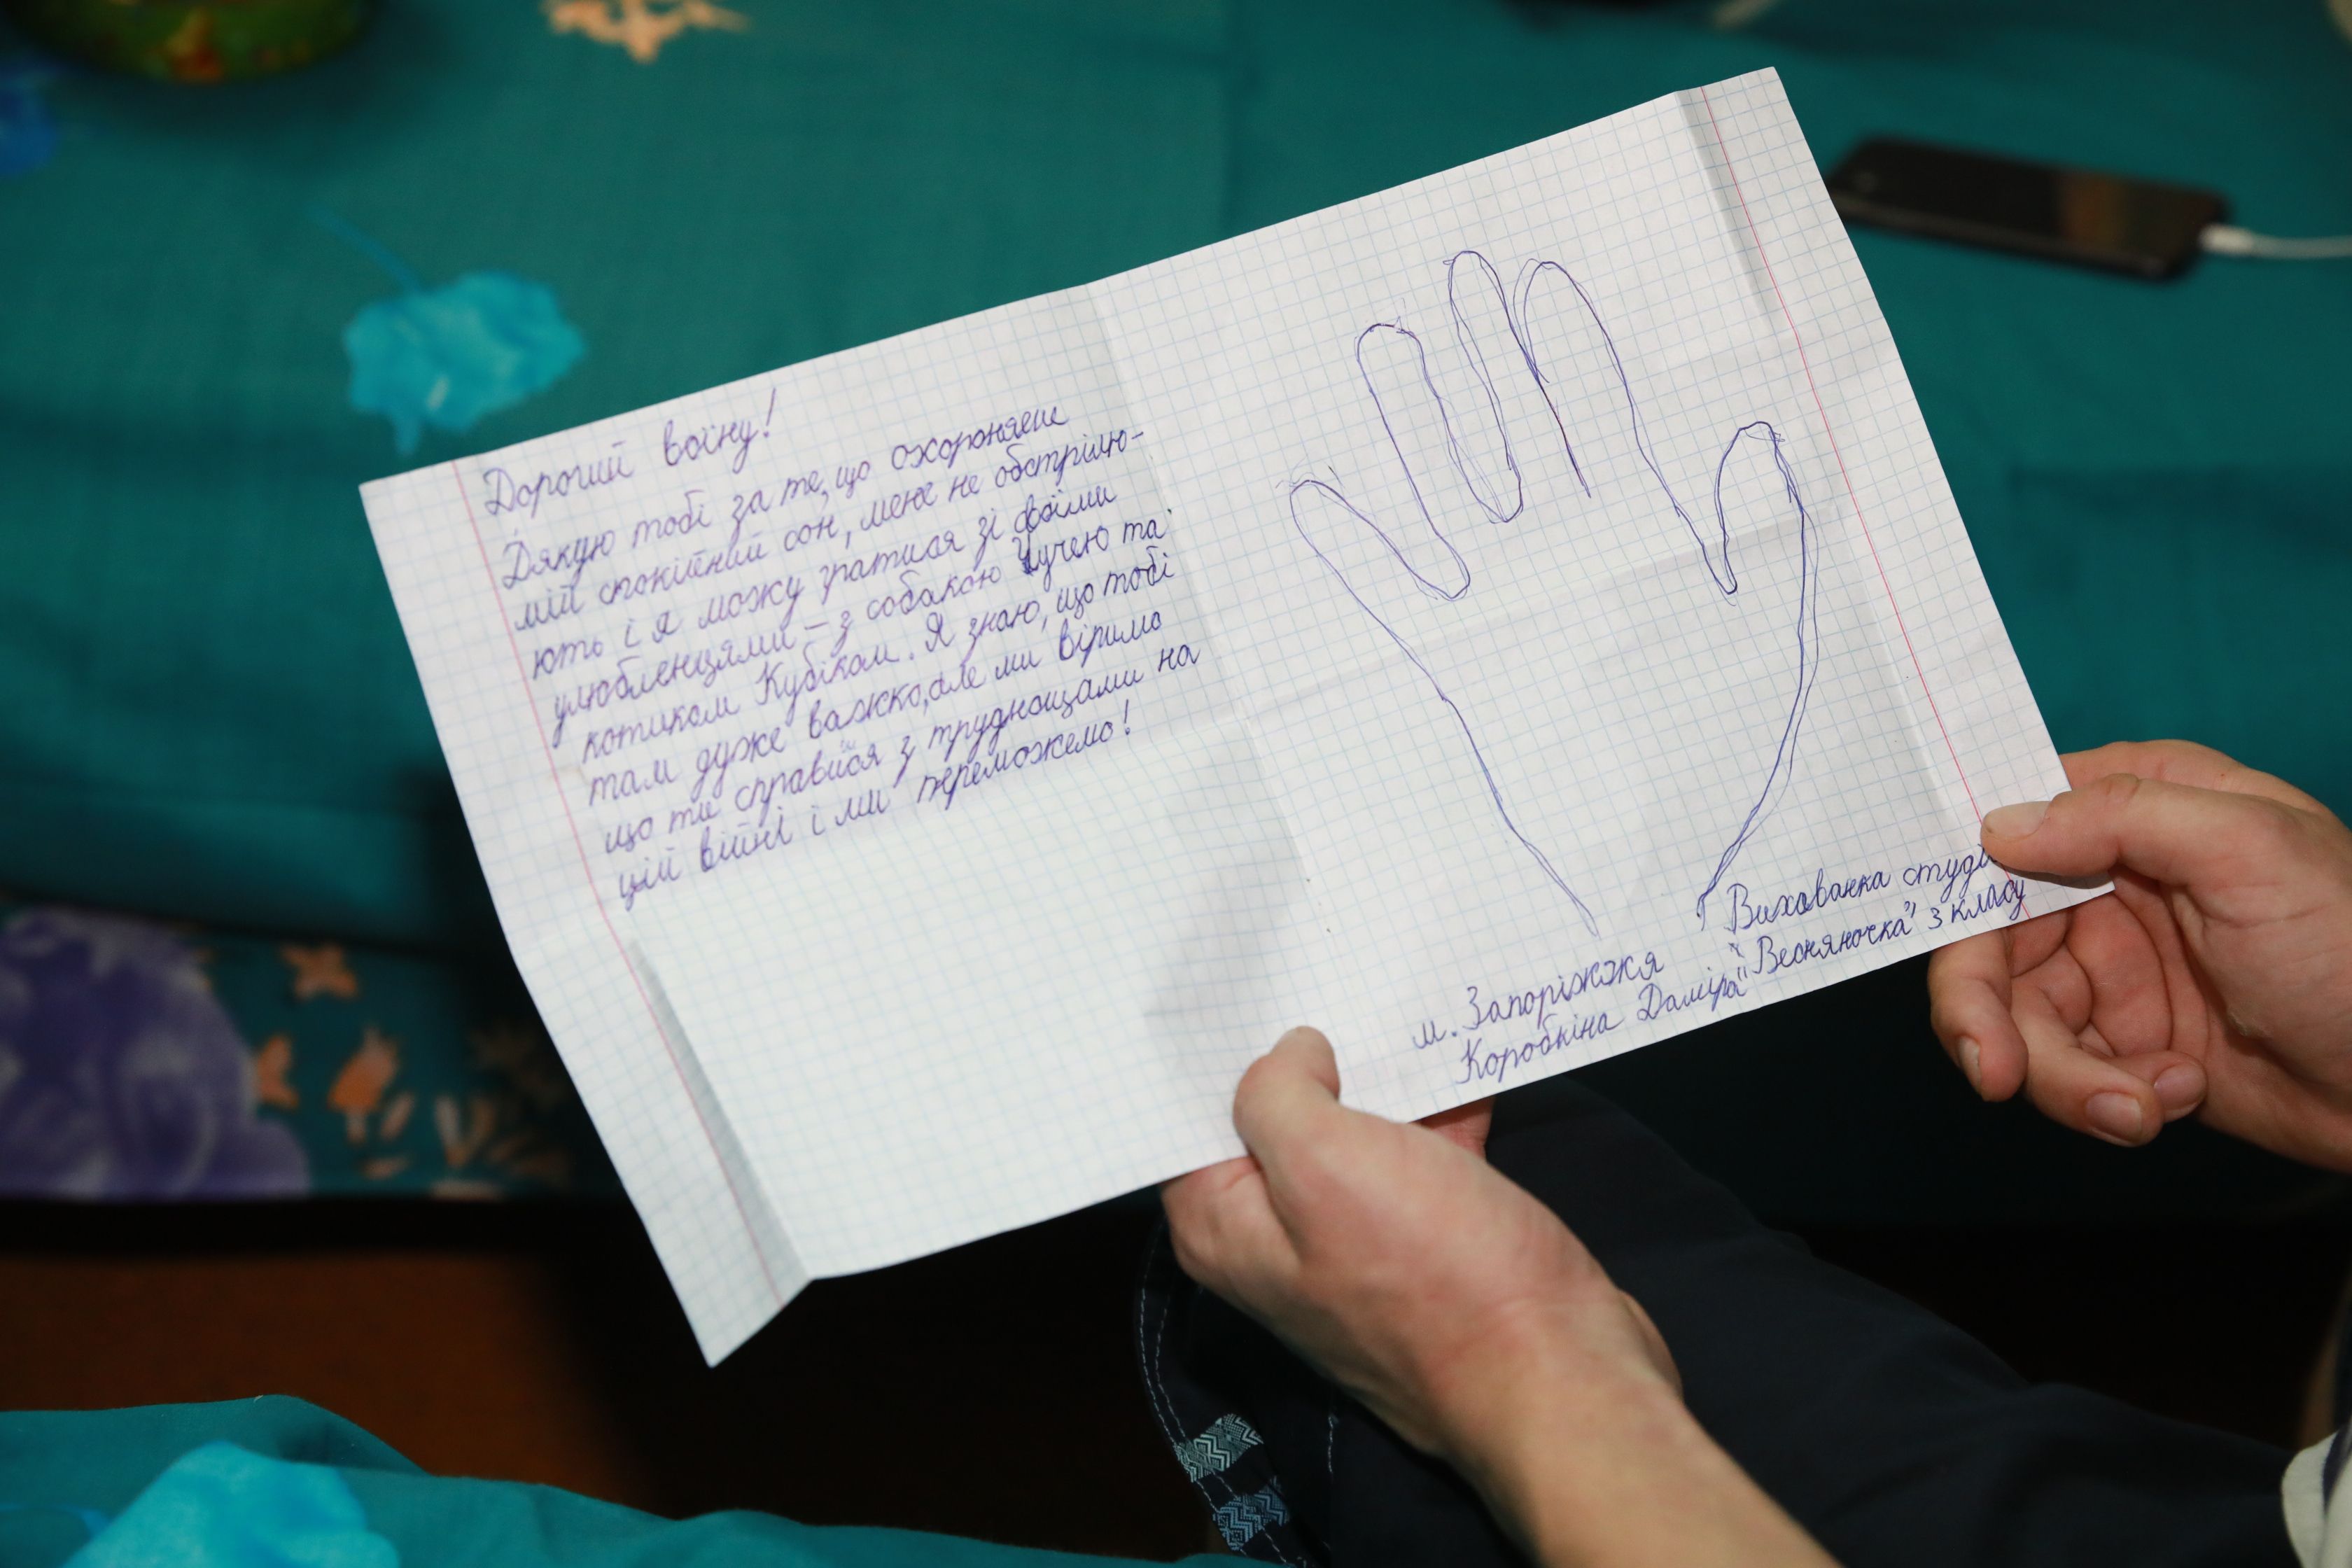 Дорогий воїну!
Дякую тобі за те, що охороняєш
мій спокійний сон, мене не обстрілю-
ють і я можу гратися зі своїми
улюбленцями – з собакою Чучею та
котиком Кубіком. Я знаю, що тобі
там дуже важко, але ми віримо
що ти справися з труднощами на
цій війні і ми переможемо!
м. Запоріжжя
Коробкіна Даміра
Вихованка студії
"Весняночка" 3 класу